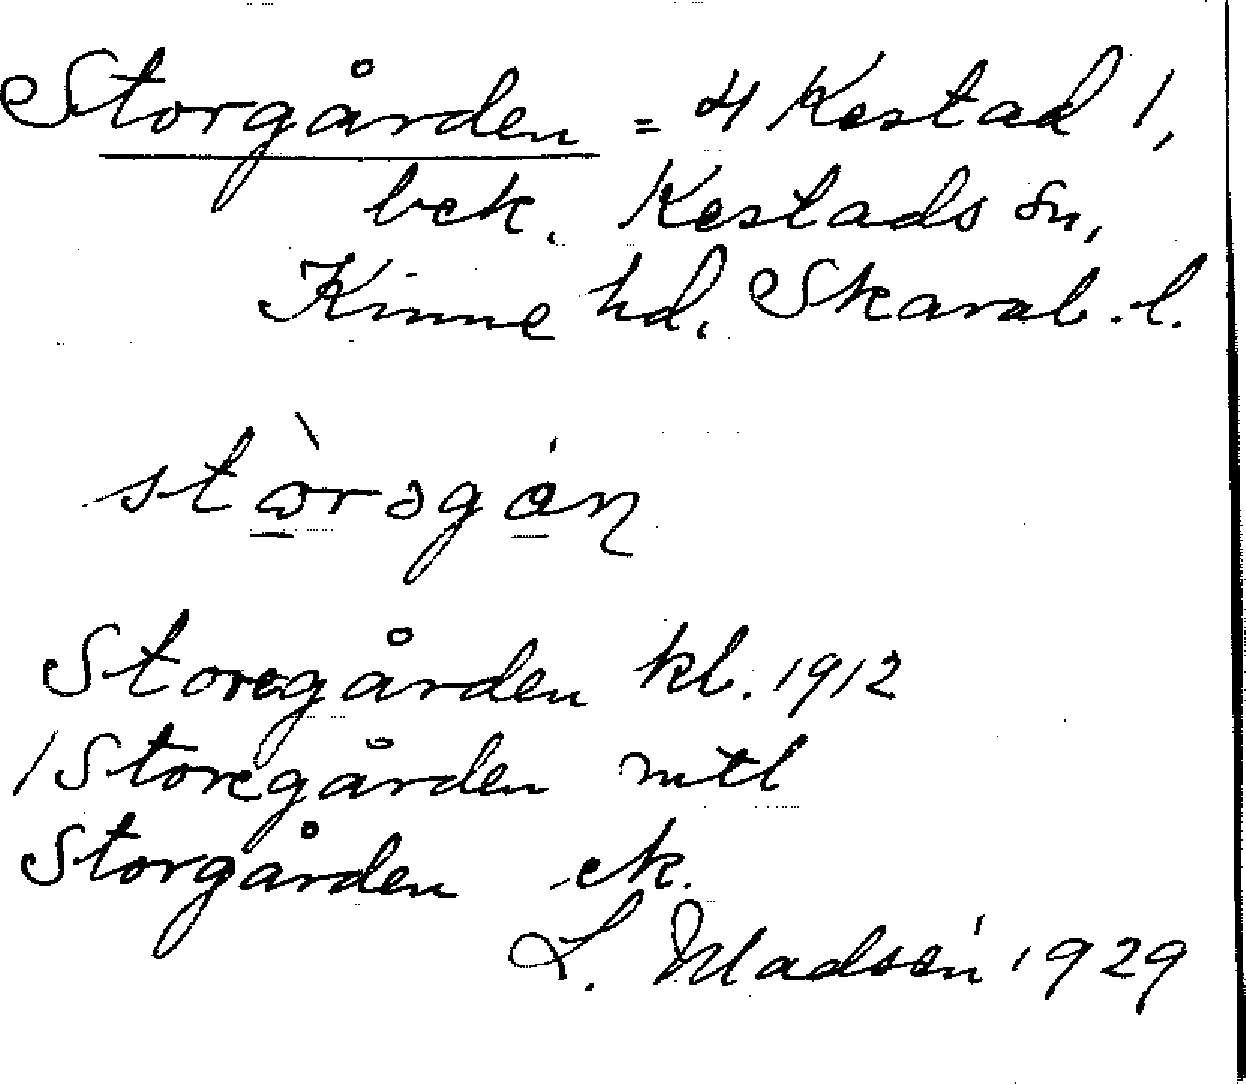 Storgården = 4 Kestad 1,
bek. Kestads sn,
Kinne hd. Skarab. l.
Storegården kl. 1912
/Storegården mtl
Storgården ek.
L. Madsén 1929